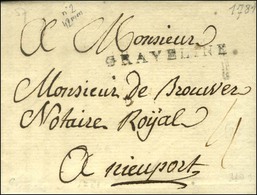 n°2
1789
A Monsieur
GRAVELINE
Monsieur de Brouwer
Notaire Royal
4
A nieuport